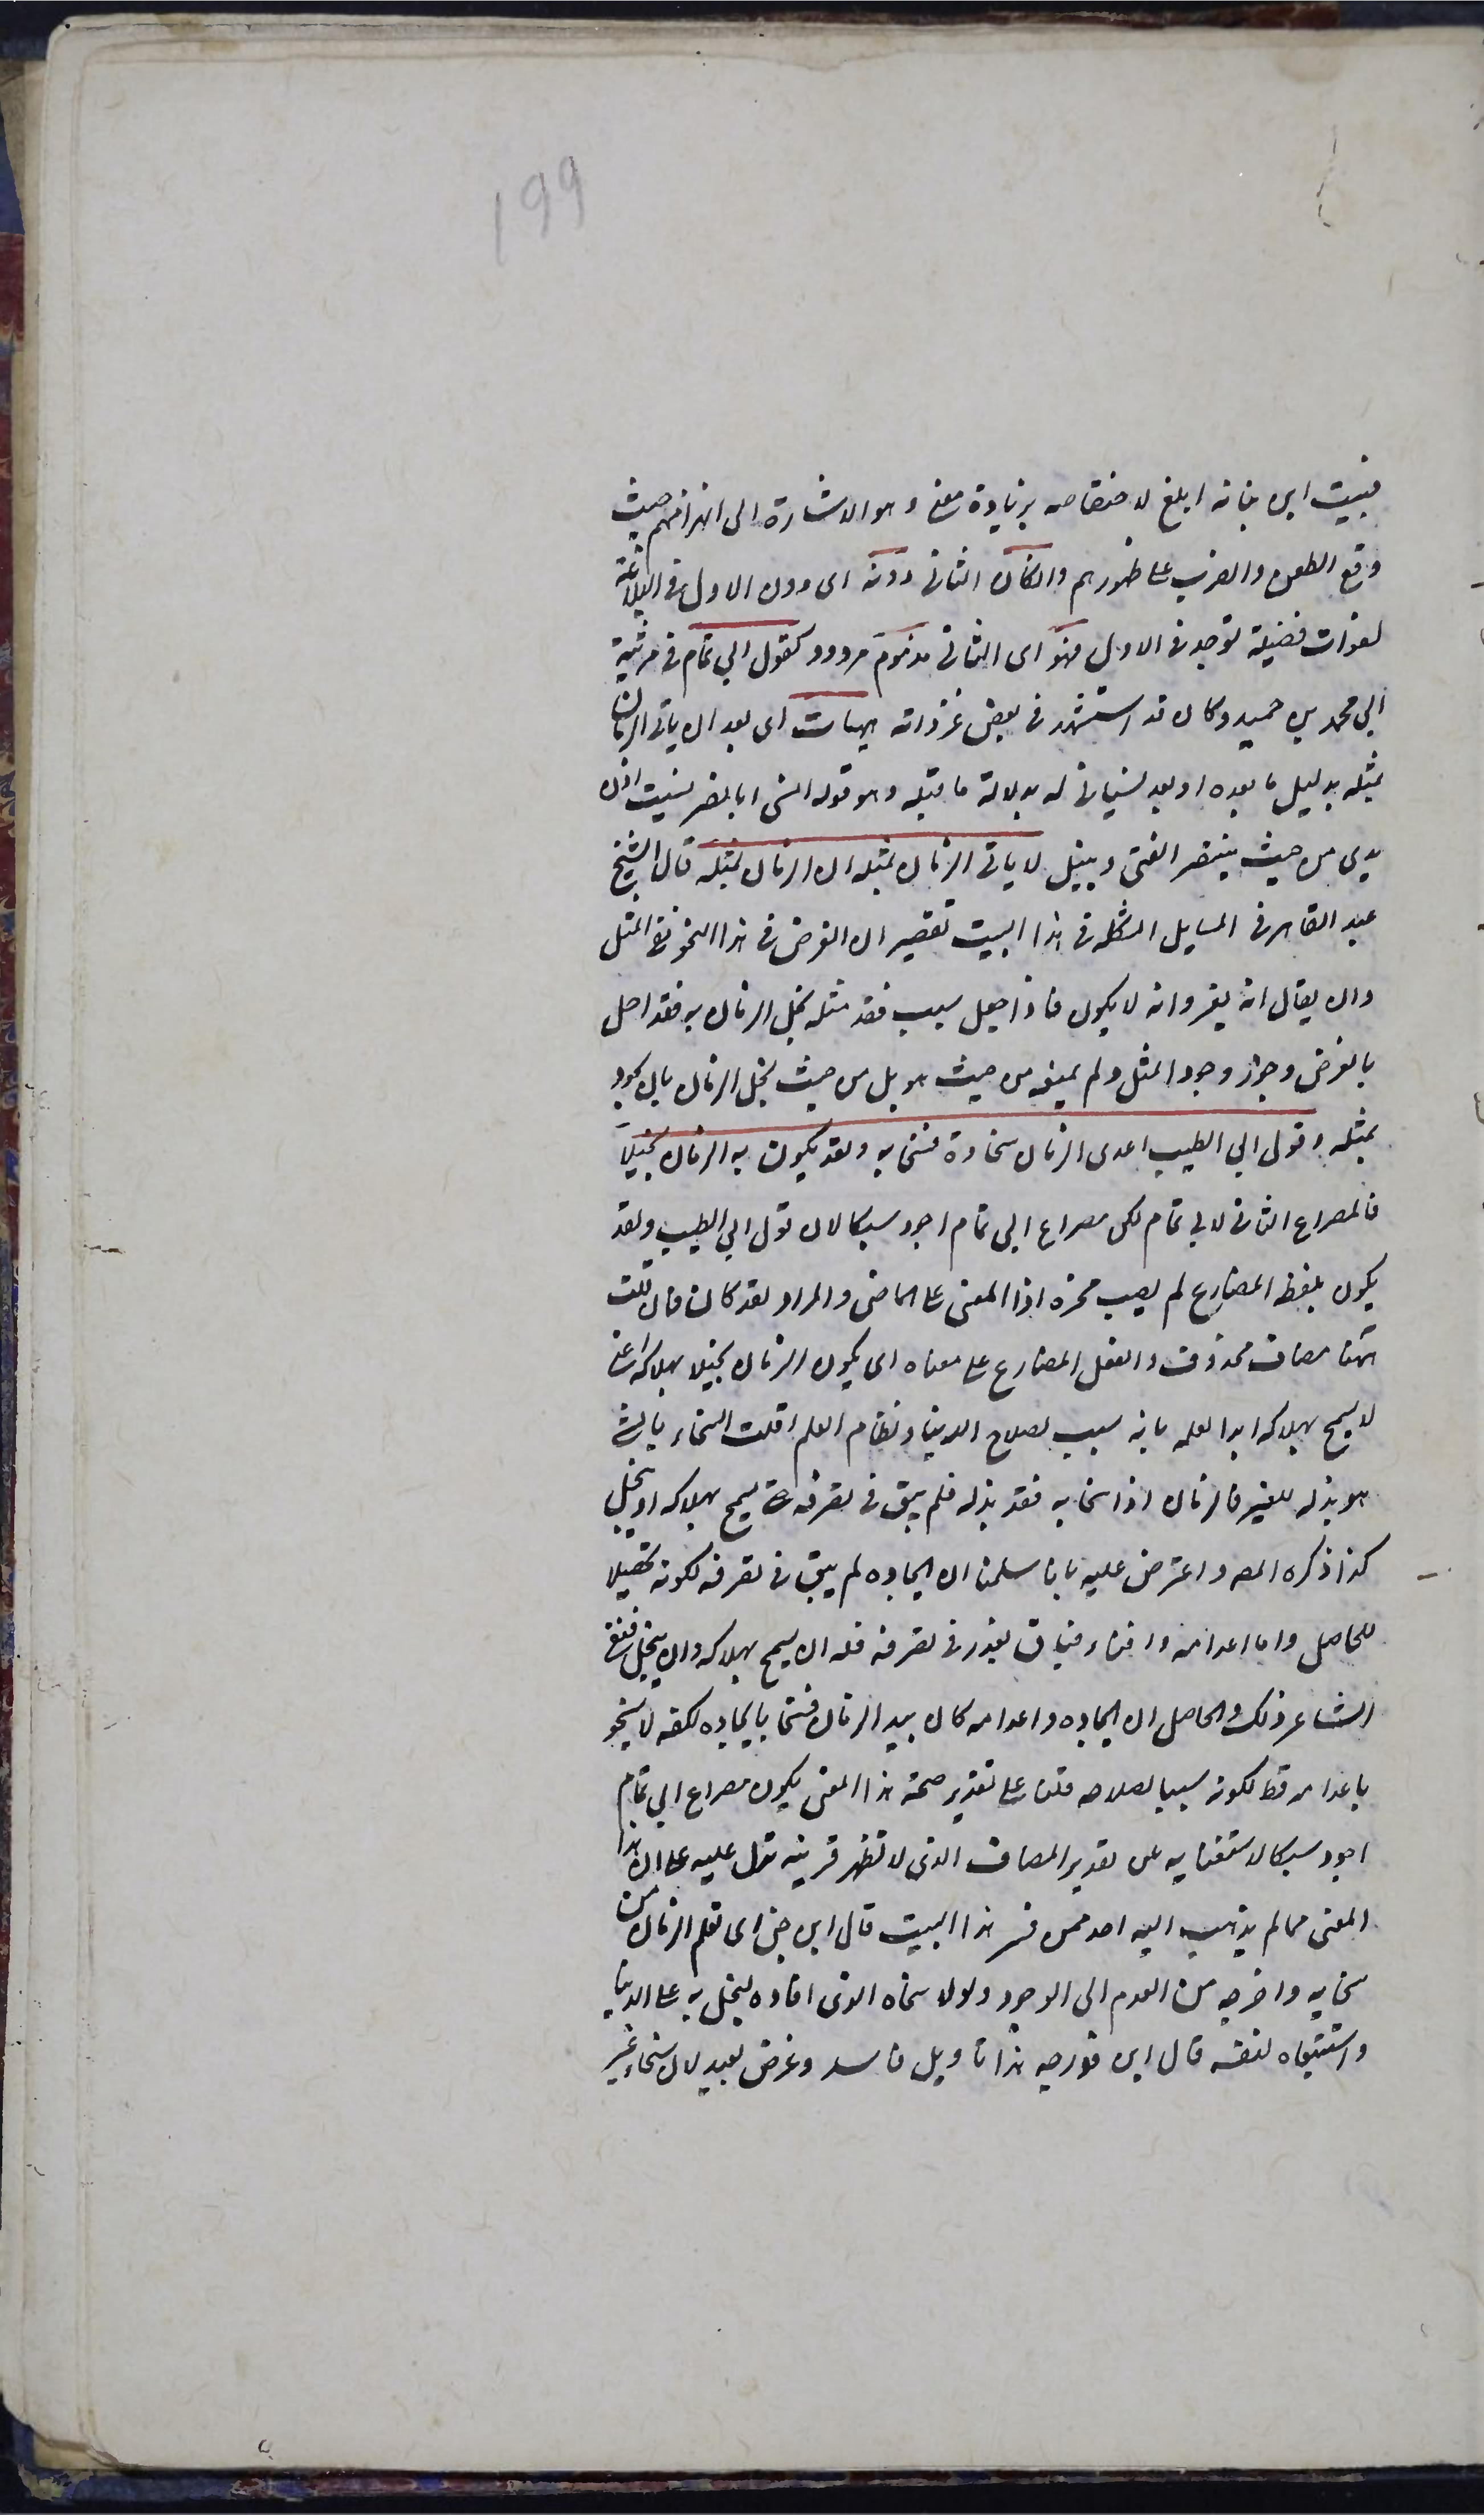 199
فبيت ابن نباته ابلغ لاختصاصه بزيادة معنى وهو الاشارة الى انهزامهم حيث
وقع الطعن والضرب على ظهورهم وان كان الثانى دونه اى دون الاول فى البلاغة
لفوات فضيلة توجد فى الاول فهو اى الثانى مذموم مردود كقول ابى تمام فى مرثية
ابى محمد بن حميد وكان قد استشهد فى بعض غزواته هيهات اى بعد ان ياتى الزمان
بمثله بدليل ما بعده او بعد نسيانى له بدلالة ما قبله وهو قوله انسى ابا نصر نسيت اذن
يدى من حيث ينتصر الفتى وينيل لا ياتى الزمان بمثله ان الزمان بمثله قال الشيخ
عبد القاهر فى المسايل المشكله فى هذا البيت تقصير ان الغرض فى هذا النحو نفى المثل
وان يقال انه يعز وانه لا يكون فاذا جعل سبب فقد مثله بخل الزمان به فقد اخل
بالغرض وجوز وجود المثل ولم يمنعه من حيث هو بل من حيث بخل الزمان بان يجود
بمثله وقول ابى الطيب اعدى الزمان سخاوه فسخا به ولقد يكون به الزمان بخيلا
فالمصراع الثانى لابى تمام لكن مصراع ابى تمام اجود سبكا لان قول ابى الطيب ولقد
يكون بلفظ المضارع لم يصب محزه اذا المعنى على الماضى والمراد لقد كان فان قلت
ههنا مضاف محذوف والفعل المضارع على معناه اى يكون الزمان بخيلا بهلاكه اعنى
لا يسمح بهلاكه ابدا لعلمه بانه سبب لصلاح الدنيا ونظام العلم قلت السخاء بالشى
هو بذله للغير فالزمان اذا سخا به فقد بذله فلم يبق فى تصرفه حتى يسمح بهلاكه او يبخل
كذا ذكره المصـ واعترض عليه بانا سلمنا ان ايجاده لم يبق فى تصرفه لكونه تحصيلا
للحاصل واما اعدامه وافناء فباق بعد فى تصرفه فله ان يسمح بهلاكه وان يبخل فنفى
الشاعر ذلك والحاصل ان ايجاده واعدامه كان بيد الزمان فسخا بايجاده لكنه لا يسخو
باعدامه قط لكونه سببا لصلاحه قلنا على تقدير صحة هذا المعنى يكون مصراع ابى تمام
اجود سبكا لاستغنايه عن تقدير المضاف الذى لا تظهر قرينه تدل عليه على ان هذا
المعنى مما لم يذهب اليه احد ممن فسر هذا البيت قال ابن جنى اى تعلم الزمان من
سخايه واخرجه من العدم الى الوجود ولولا سخاه الذى افاده لبخل به على الدنيا
واستبقاه لنفسه قال ابن فورجه هذا تاويل فاسد وغرض بعيد لان سخاء غير